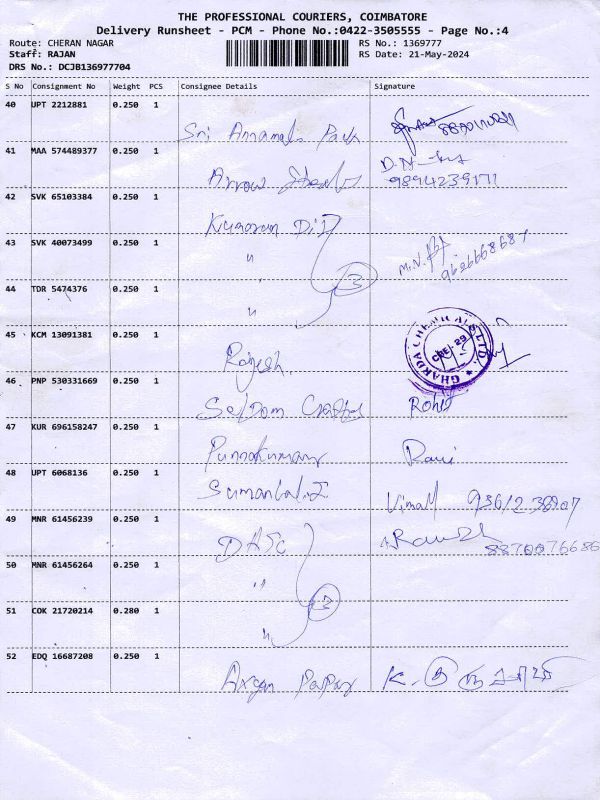 THE PROFESSIONAL COURIERS, COIMBATORE
Delivery Runsheet - PCM - Phone No.:0422-3505555 - Page No.:4
Route: CHERAN NAGAR RS No.: 1369777
Staff: RAJAN RS Date: 21-May-2024
DRS No.: DCJB136977704
S No Consignment No Weight PCS Consignee Details Signature
40 UPT 2212881 0.250 1
Sri Annamalai
41 MAA 574489377 0.250 1
Arrow 9894239171
42 SVK 65103384 0.250 1
Kumaran
43 SVK 40073499 0.250 1
" M.N.
3
44 TDR 5474376 0.250 1
"
45 KCM 13091381 0.250 1
GHARDA CHEMICALS LTD.
Rajesh.
46 PNP 530331669 0.250 1
Seldom Rohit
47 KUR 696158247 0.250 1
Punnakumar Ravi
48 UPT 6068136 0.250 1
Vimal
49 MNR 61456239 0.250 1
8870076686
50 MNR 61456264 0.250 1
"
51 COK 21720214 0.280 1
"
52 EDQ 16687208 0.250 1
K.